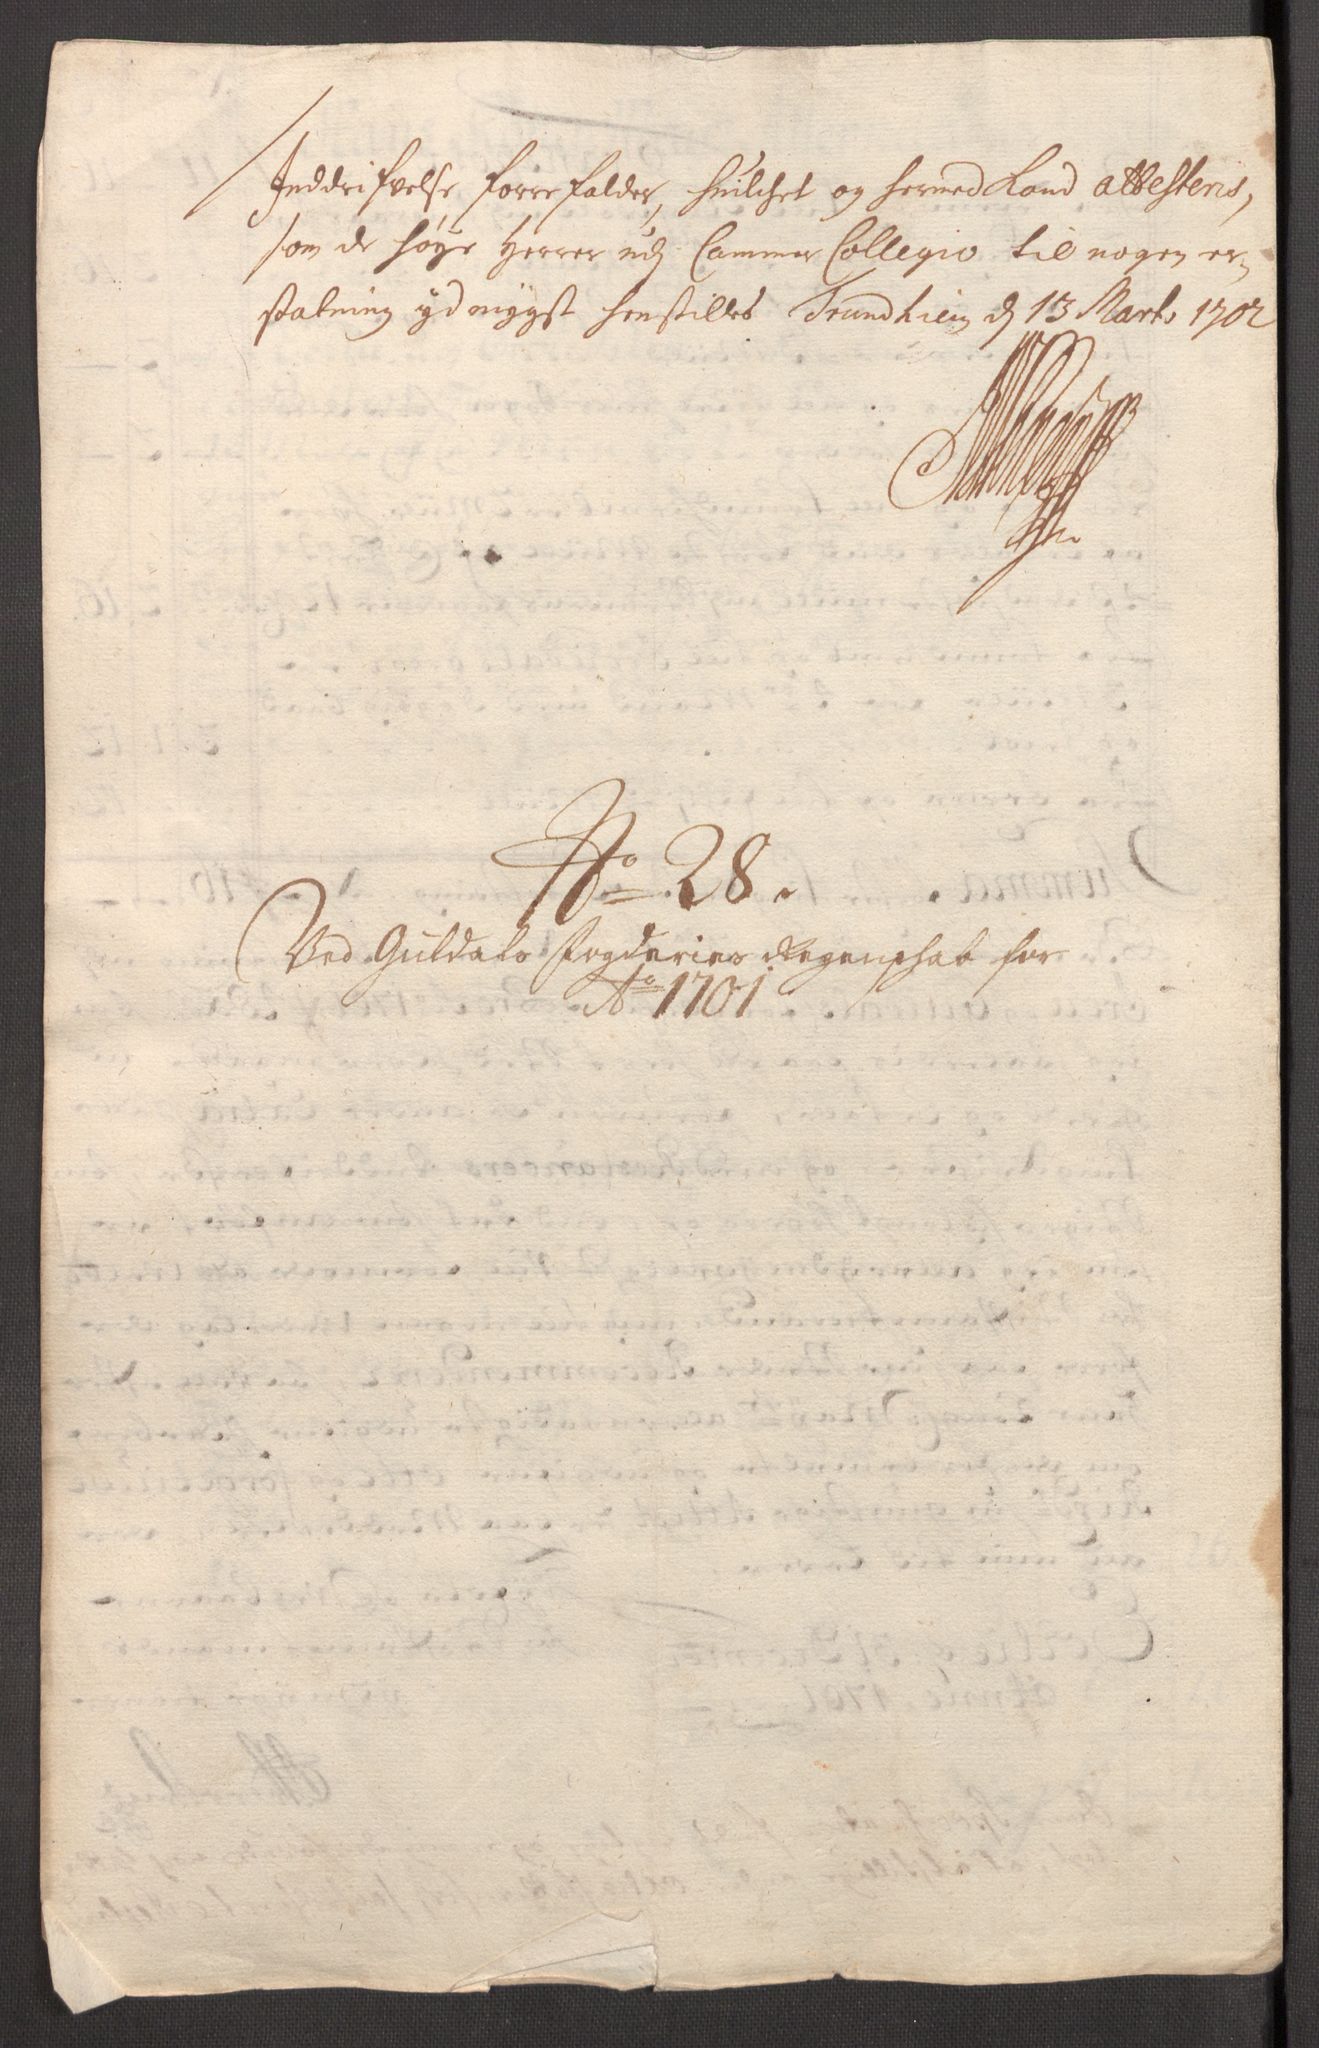 Inddrifvelse forrefalder, huilchet og hermed Kand attesteris,
som de høye Herrer udj Cammer Collegio til nogen er-
statning ydmygst henstilles Trundhiem d 13 Marti 1702
No. 28.
Ved Guldals fogderies Regenschab for
Ao 1701